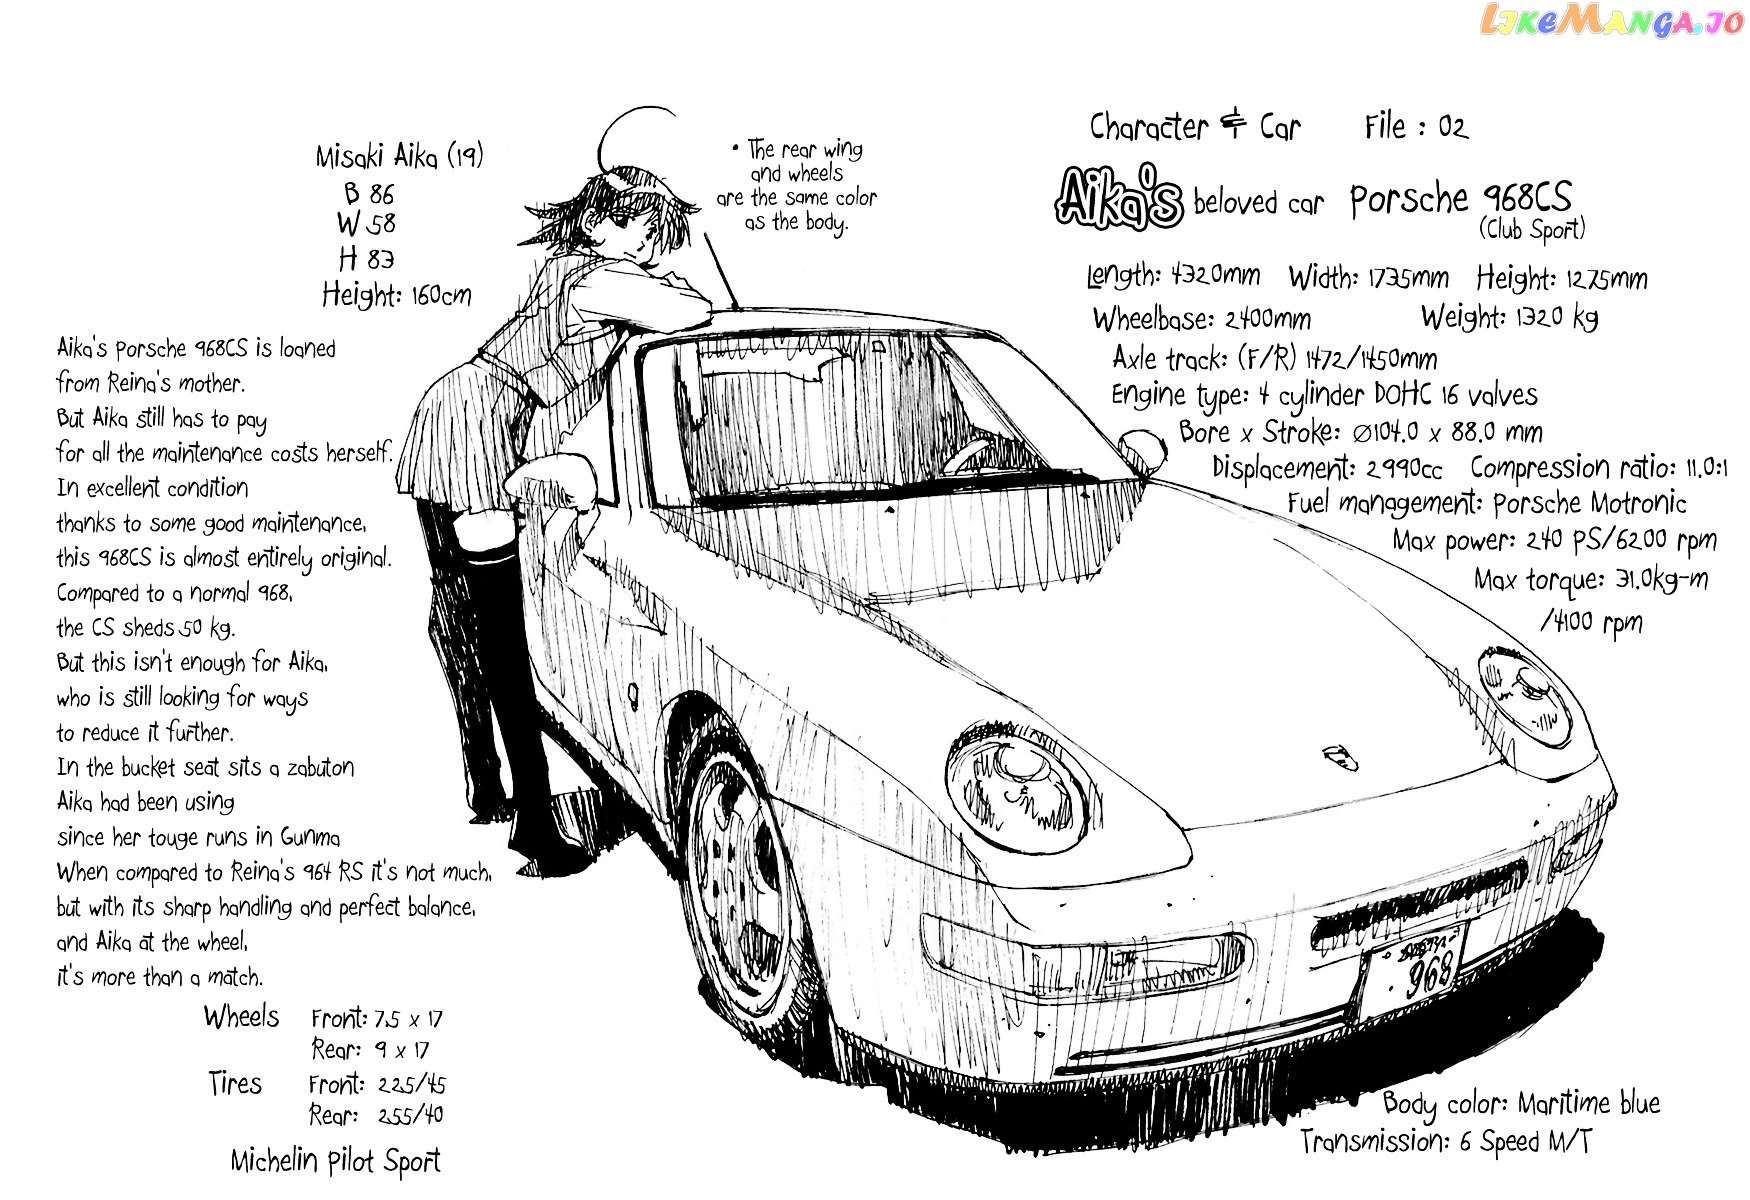 LIKEMANGA.IO
Misaki Aika (19)
B 86
W 58
H 83
Height: 160cm
• The rear wing
and wheels
are the same color
as the body.
Character & Car File : 02
Aika's beloved car Porsche 968CS
(Club Sport)
Length: 4320mm Width: 1735mm Height: 1275mm
Wheelbase: 2400mm Weight: 1320 kg
Axle track: (F/R) 1472/1450mm
Engine type: 4 cylinder DOHC 16 valves
Bore x Stroke: ∅104.0 x 88.0 mm
Displacement: 2990cc Compression ratio: 11.0:1
Fuel management: Porsche Motronic
Max power: 240 PS/6200 rpm
Max torque: 31.0kg-m
/4100 rpm
Aika's Porsche 968CS is loaned
from Reina's mother.
But Aika still has to pay
for all the maintenance costs herself.
In excellent condition
thanks to some good maintenance,
this 968CS is almost entirely original.
Compared to a normal 968,
the CS sheds 50 kg.
But this isn't enough for Aika,
who is still looking for ways
to reduce it further.
In the bucket seat sits a zabuton
Aika had been using
since her touge runs in Gunma
When compared to Reina's 964 RS it's not much,
but with its sharp handling and perfect balance,
and Aika at the wheel,
it's more than a match.
Wheels Front: 7.5 x 17
Rear: 9 x 17
Tires Front: 225/45
Rear: 255/40
Michelin Pilot Sport
968
Body color: Maritime blue
Transmission: 6 Speed M/T